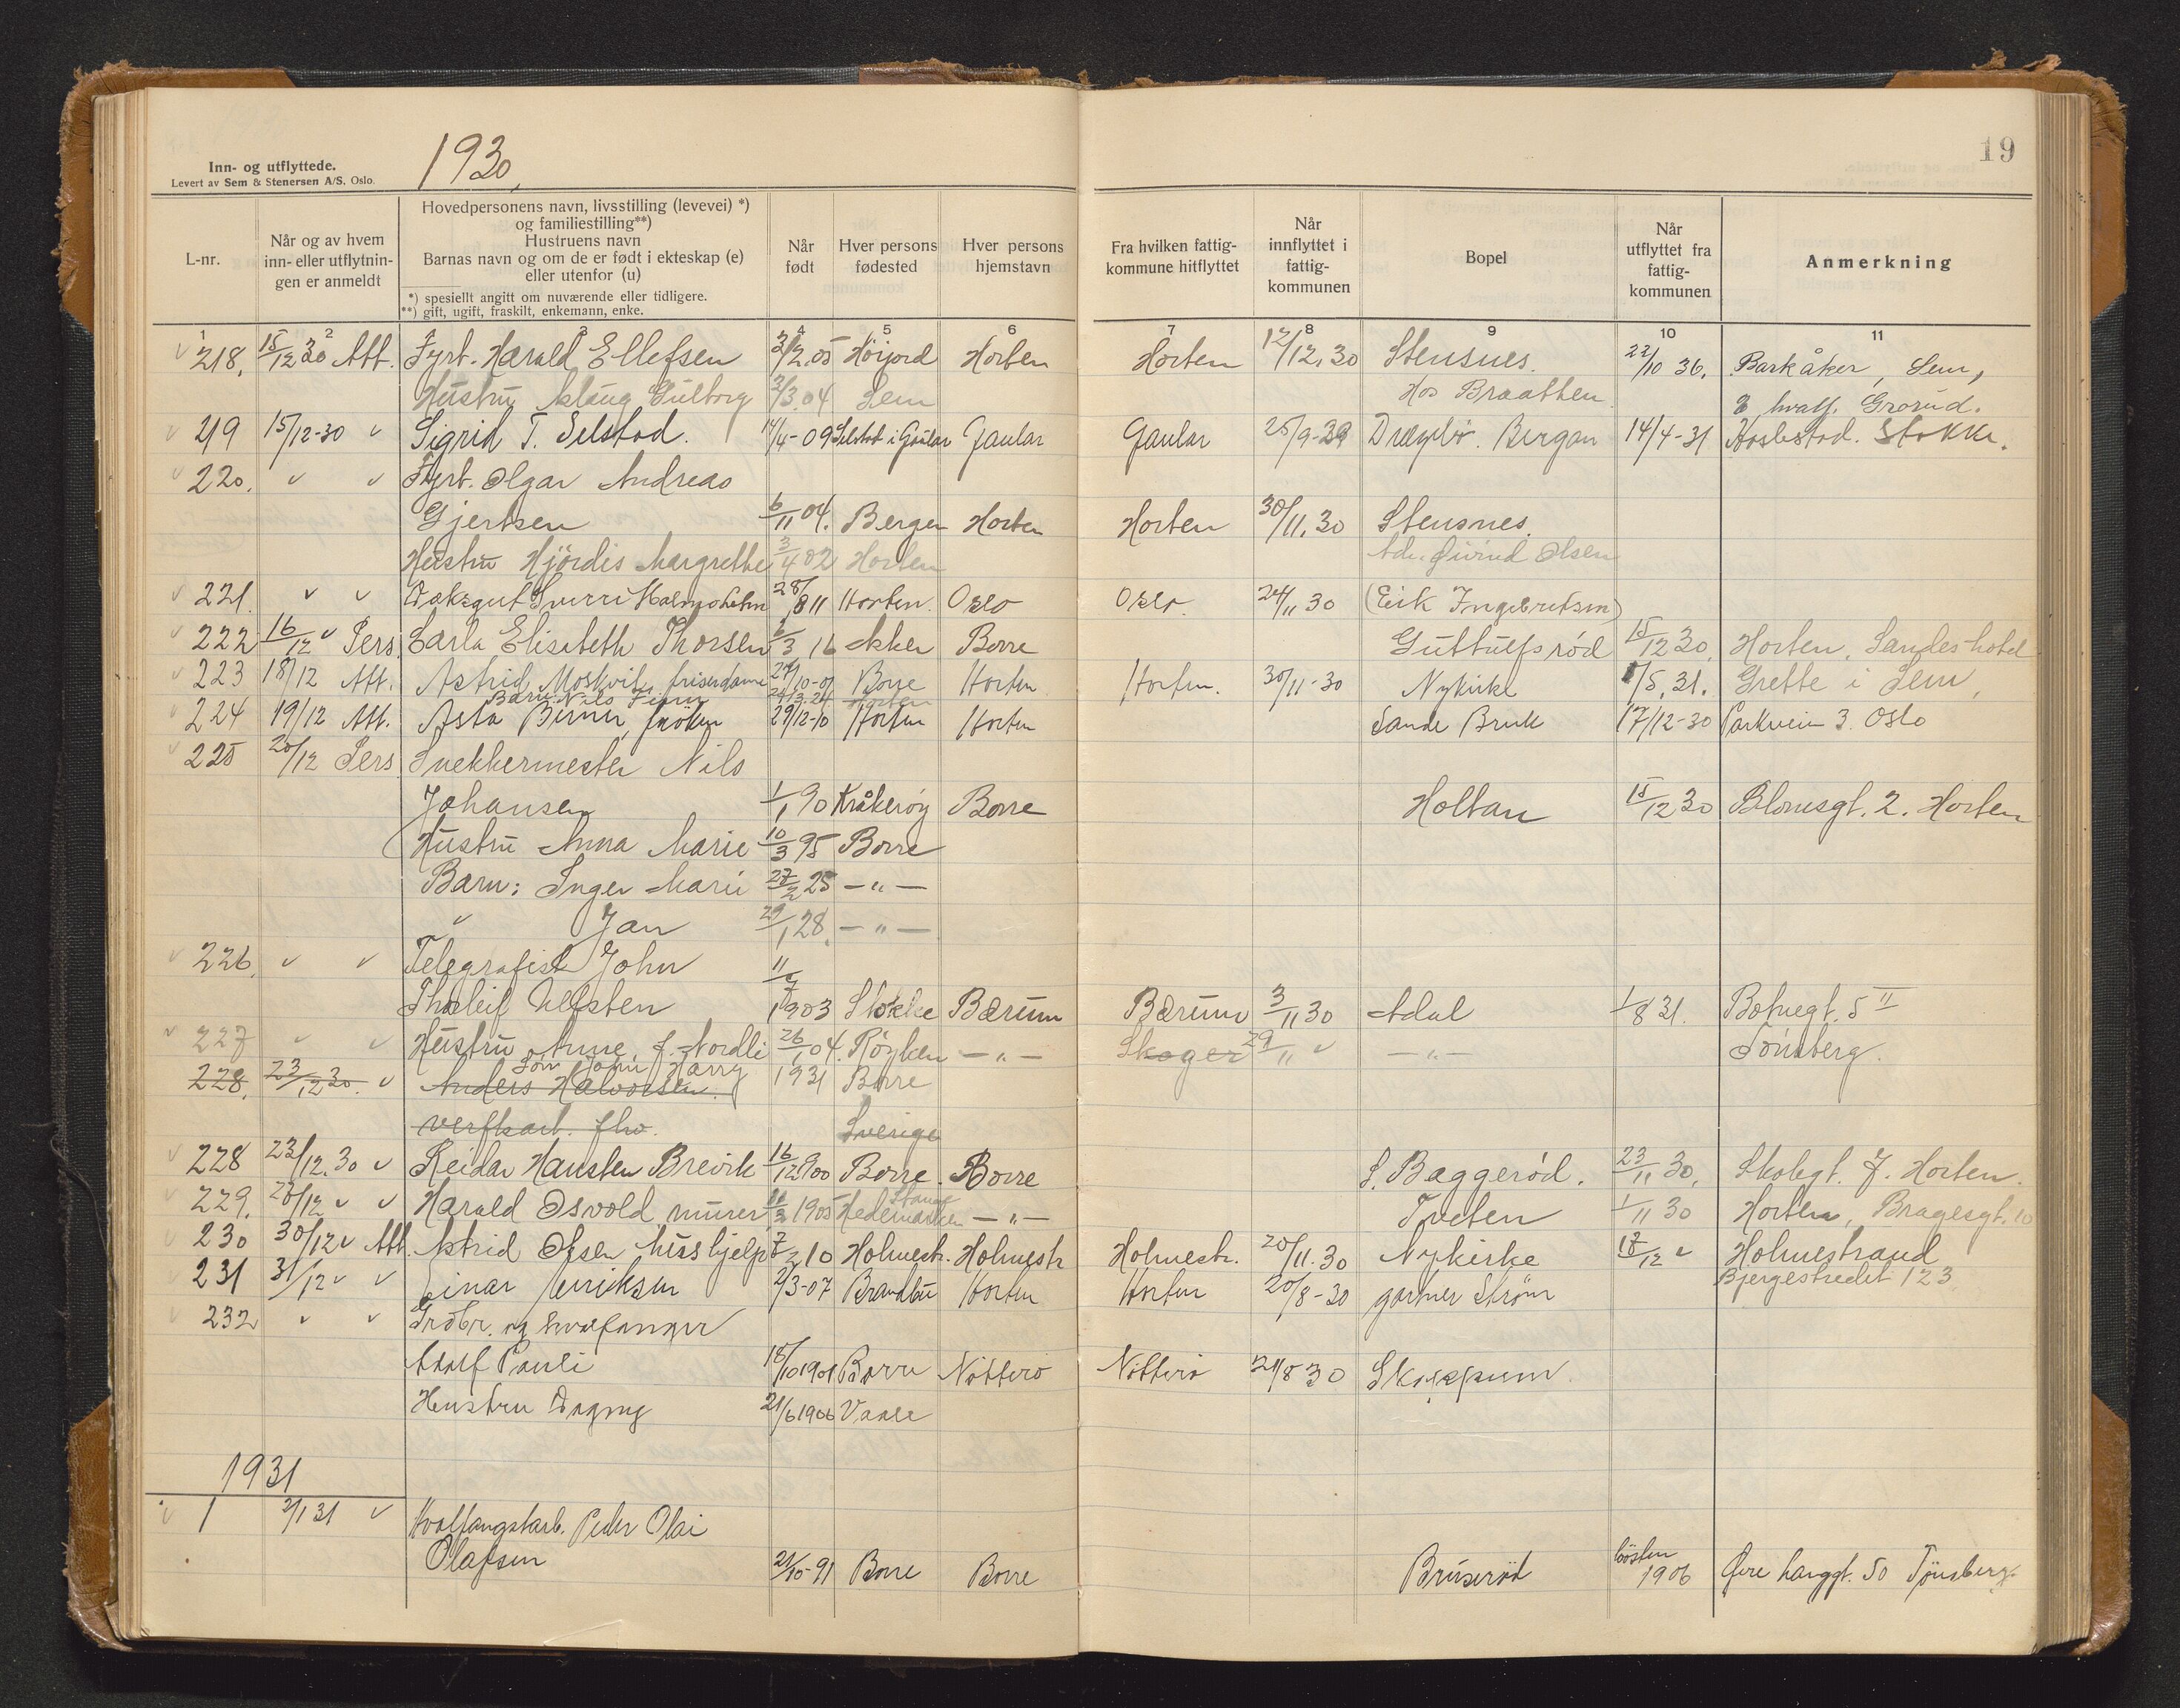 19
1930,
Inn- og utflyttede.
Levert av Sem & Stenersen A/S. Oslo.
L-nr. | Når og av hvem inn- eller utflytnin-gen er anmeldt | Hovedpersonens navn, livsstilling (levevei) *) og familiestilling**) Hustruens navn Barnas navn og om de er født i ekteskap (e) eller utenfor (u) *) spesiellt angitt om nuværende eller tidligere. **) gift, ugift, fraskilt, enkemann, enke. | Når født | Hver persons fødested | Hver persons hjemstavn | Fra hvilken fattig-kommune hitflyttet | Når innflyttet i fattig-kommunen | Bopel | Når utflyttet fra fattig-kommunen | Anmerkning
1 2 3 4 5 6 7 8 9 10 11
218. 15/12 30 Att. Fyrb. Harald Ellefsen 3/2.05 Horten Horten 12/12.30 Stensnes. 22/10 36. Barkåker, Sem,
Hustru Aslaug Gulborg 2/3.04 Sem Hos Braathen Grorud.
219 15/12-30 " Sigrid T. Selstad. 14/4-09 Selstad i Gaular Gaular Gaular 25/9-29 Bergan 14/4-31 Stokke.
220. " " Fyrb. Olgar Andreas
Gjertsen 6/11 04. Bergen Horten Horten 30/11.30 Stensnes.
Hustru Hjördis Margrethe 3/4 02 Horten Adr. Øivind Olsen
221. " " 28/8 11 Horten. Oslo Oslo. 24/11 30 (Eik Ingebretsen)
222 16/12 " Pers. Carla Elisabeth Thorsen 2/3 16 Aker Borre Guttulfsrød 15/12 30. Horten. Sandes hotel
223 18/12 Att. Astrid Moskvil, friserdame Borre Horten Horten. 30/11-30 Nykirke 1/5.31. Grette i Sem,
Barn: Nils Finn Horten
224 19/12 Att. Asta frøken 29/12-10 Horten Horten Sande Bruk 17/12-30 Parkveien 3. Oslo
225 20/12 Pers. Snekkermester Nils
Johansen 1/1 90 Kråkerøy Borre Holtan 15/12 30 Blomsgt. 2. Horten
Hustru Anna Marie 10/3 95 Borre
Barn: Inger Marie 27/2 25 — " —
" Jan 29/1 28. — " —
226. " " Telegrafist John
Thorleif Ulfsten 11/7 1903 Stokke Bærum Bærum 3/11 30 Adal 1/8 31. Botnegt. 5 II
227 " " Hustru Anne, f. Nordli 26/1 04. Röyken — " — Skoger 29/11 " — " — Tönsberg.
Sön John Harry 1931 Borre
228. 23/12 30. " Anders Halvorsen.
verftsarb. Sverige
228 23/12.30 " Reidar Hansten Brevik 16/12 1900 Borre. Borre S. Baggerød. 23/11 30. Skolegt. 7. Horten.
229. 28/12 " " Harald Osvold murer 1905 Stange Hedemarken — " — Tveten 1/11 30 Horten, Bragesgt. 10
230 30/12 " Att. Astrid Olsen hushjelp 7/2 10 Holmestr. Holmestr Holmestr. 20/11.30 Nykirke 17/12 " Holmestrand
Bjergestredet 123
231 31/12 " " Einar Henriksen 2/3-07 Brandbu Horten Horten 20/8-30 gartner Strøm
232 " " Gröbr. og hvalfanger
Adolf Pauli 18/10 1901 Borre Nötterö Nötterö 24/8 30 Skoppum
Hustru Dagny 21/6 1906 Vaale
1931
1 2/1 31 " Hvalfangstarb. Peder Olai
Olafsen 21/10-91 Borre Borre Bruserød høsten 1906 Øvre Langgt. 50 Tönsberg.